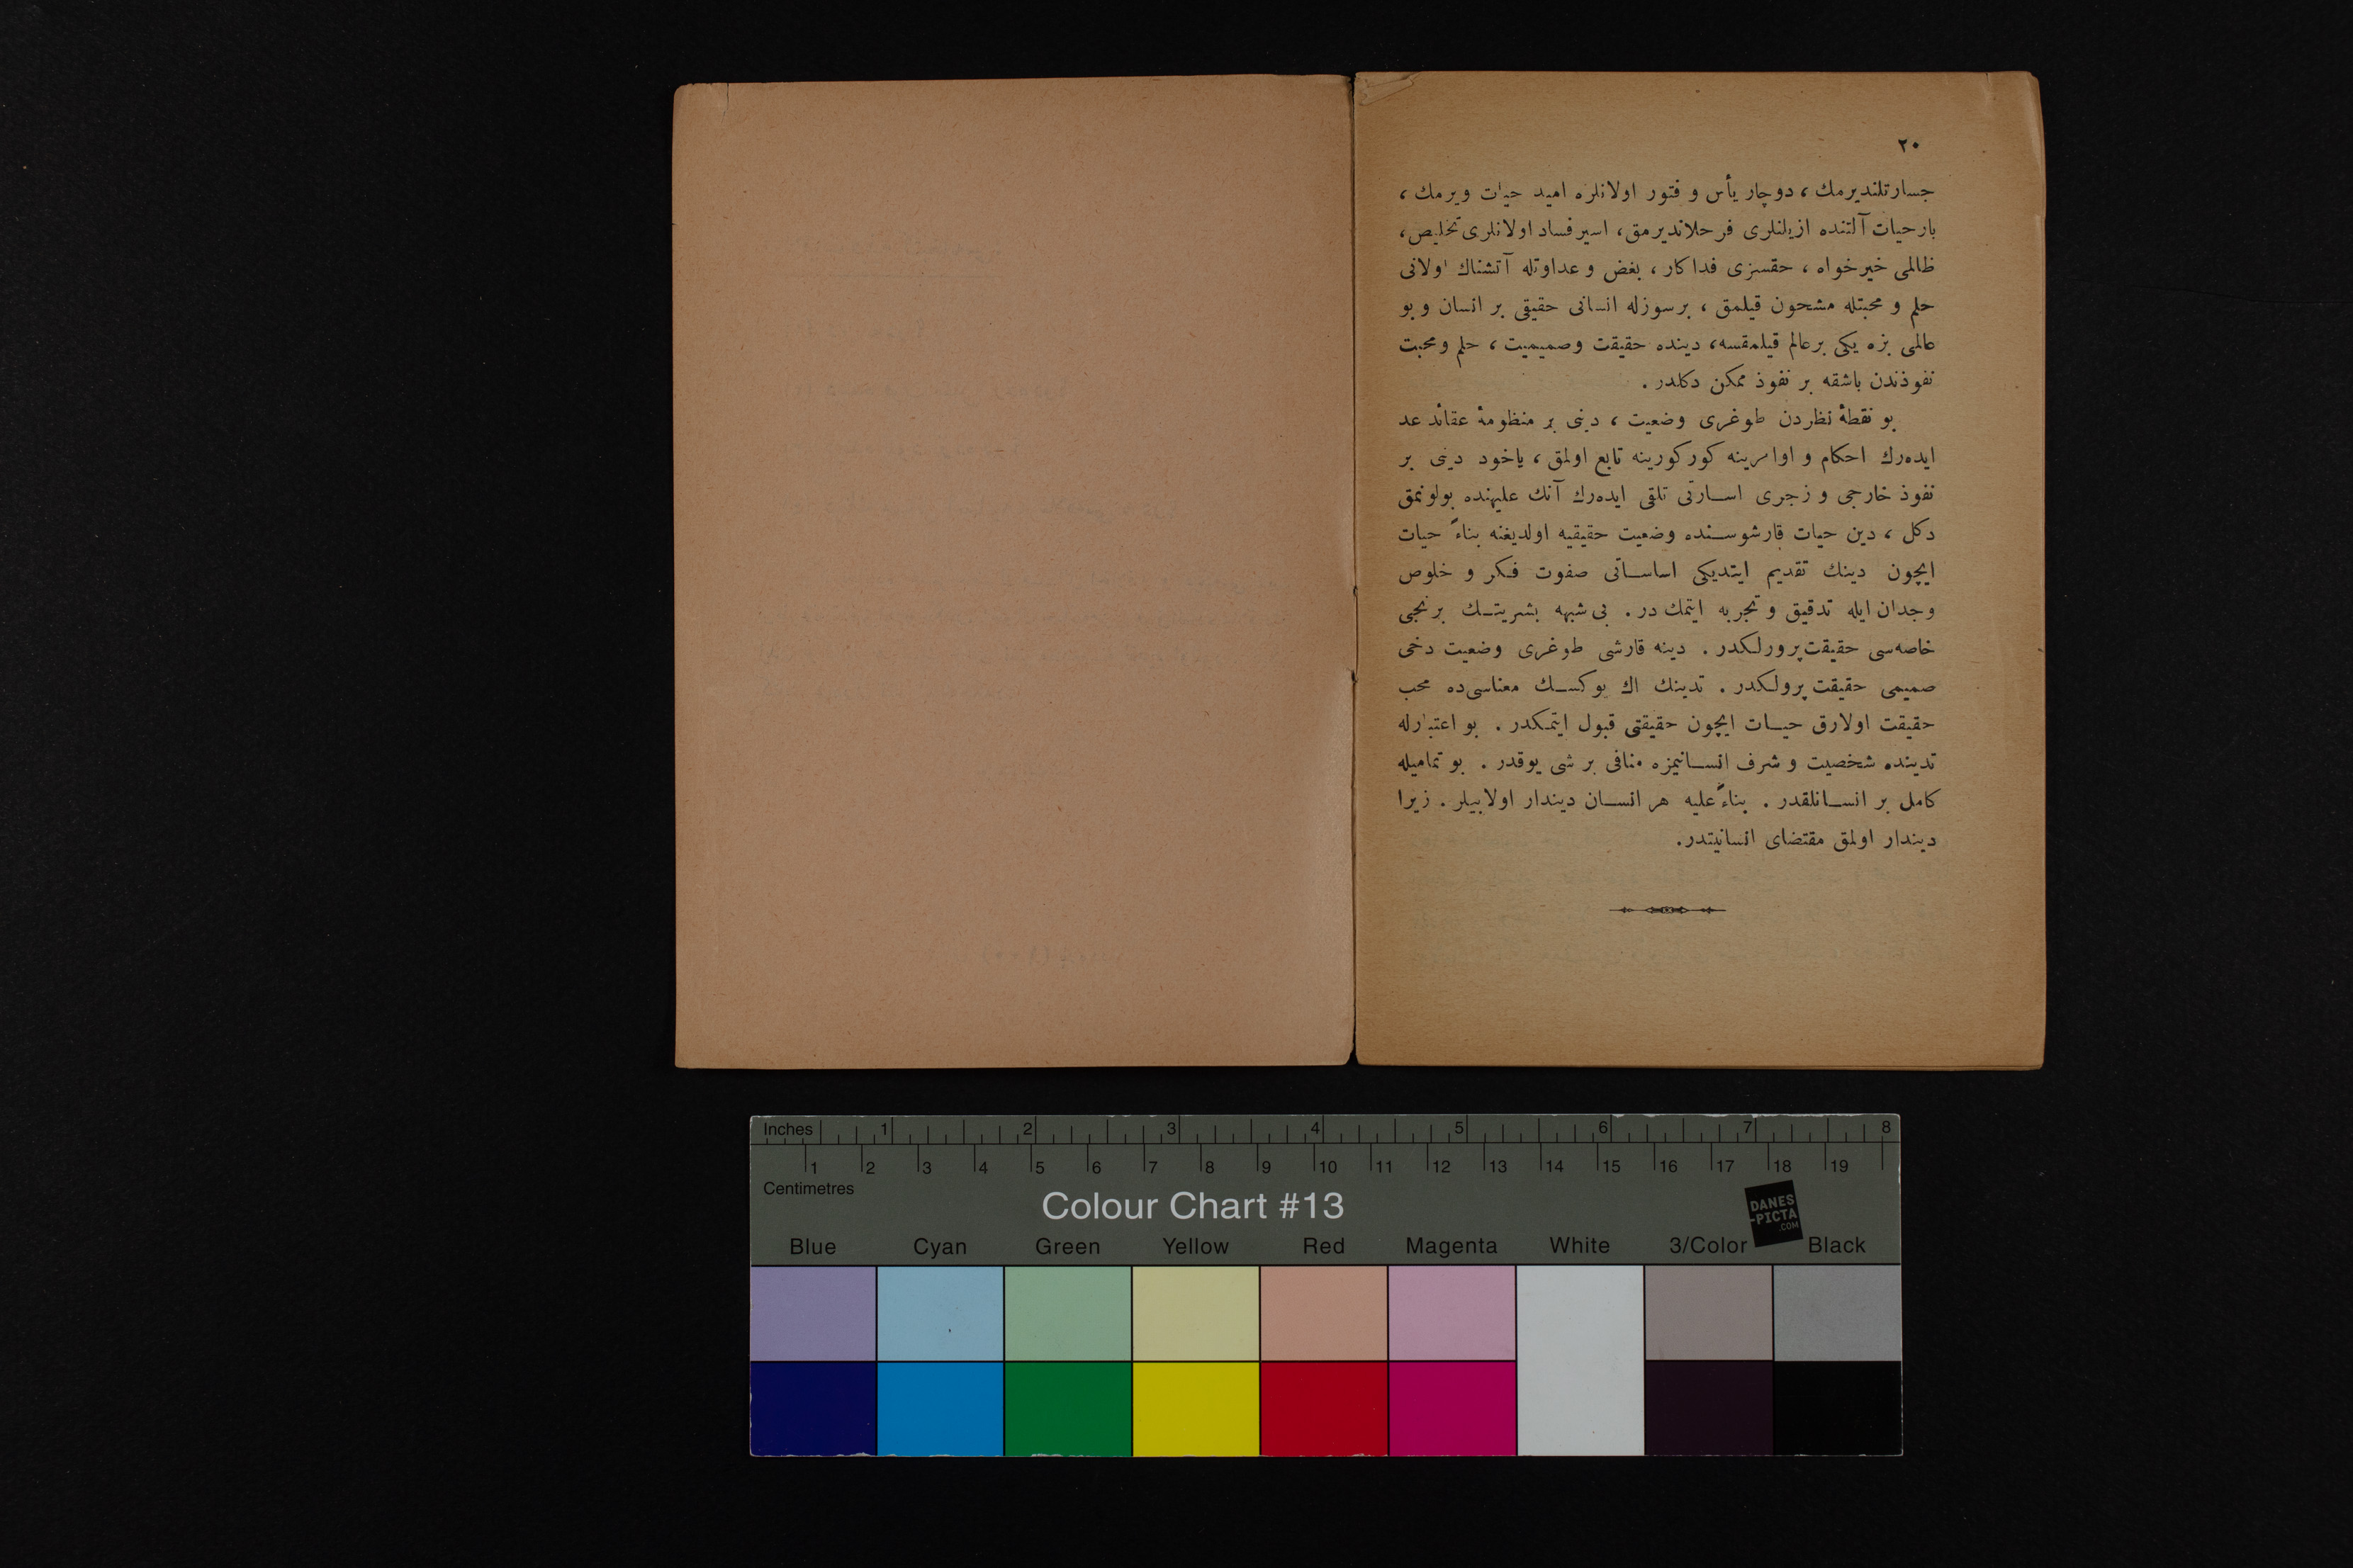 ٢٠
جسارتلندیرمك ، دوچار یأس و فتور اولانلره امید حیات ویرمك ،
بار حیات آلتنده ازیلنلری فرحلاندیرمق ، اسیر فساد اولانلری تخلیص ،
ظالمی خیرخواه ، حقسزی فداکار ، بغض و عداوتله آتشناك اولانی
حلم و محبتله مشحون قیلمق ، برسوزله انسانی حقیقی بر انسان و بو
عالمی بزه یکی برعالم قیلمقسه ، دینده حقیقت وصمیمیت ، حلم ومحبت
نفوذندن باشقه بر نفوذ ممکن دکلدر .
بو نقطۀ نظردن طوغری وضعیت ، دینی بر منظومۀ عقائد عد
ایده‌رك احکام و اوامرینه کورکورینه تابع اولمق ، یاخود دینی بر
نفوذ خارجی و زجری اسارتی تلقی ایده‌رك آنك علیهنده بولونمق
دکل ، دین حیات قارشوسنده وضعیت حقیقیه اولدیغنه بناءً حیات
ایچون دینك تقدیم ایتدیکی اساساتی صفوت فکر و خلوص
وجدان ایله تدقیق و تجربه ایتمك در . بی شبهه بشریتك برنجی
خاصه‌سی حقیقت‌پرورلکدر . دینه قارشی طوغری وضعیت دخی
صمیمی حقیقت پرولکدر . تدینك اك یوکسك معناسی‌ده محب
حقیقت اولارق حیات ایچون حقیقتی قبول ایتمکدر . بو اعتبارله
تدینده شخصیت و شرف انسانیمزه منافی بر شی یوقدر . بو تمامیله
کامل بر انسانلقدر . بناءً علیه هر انسان دیندار اولابیلر . زیرا
دیندار اولمق مقتضای انسانیتدر.
Inches 1 2 3 4 5 6 7 8
1 2 3 4 5 6 7 8 9 10 11 12 13 14 15 16 17 18 19
Centimetres
Colour Chart #13
DANES
-PICTA
.COM
Blue Cyan Green Yellow Red Magenta White 3/Color Black